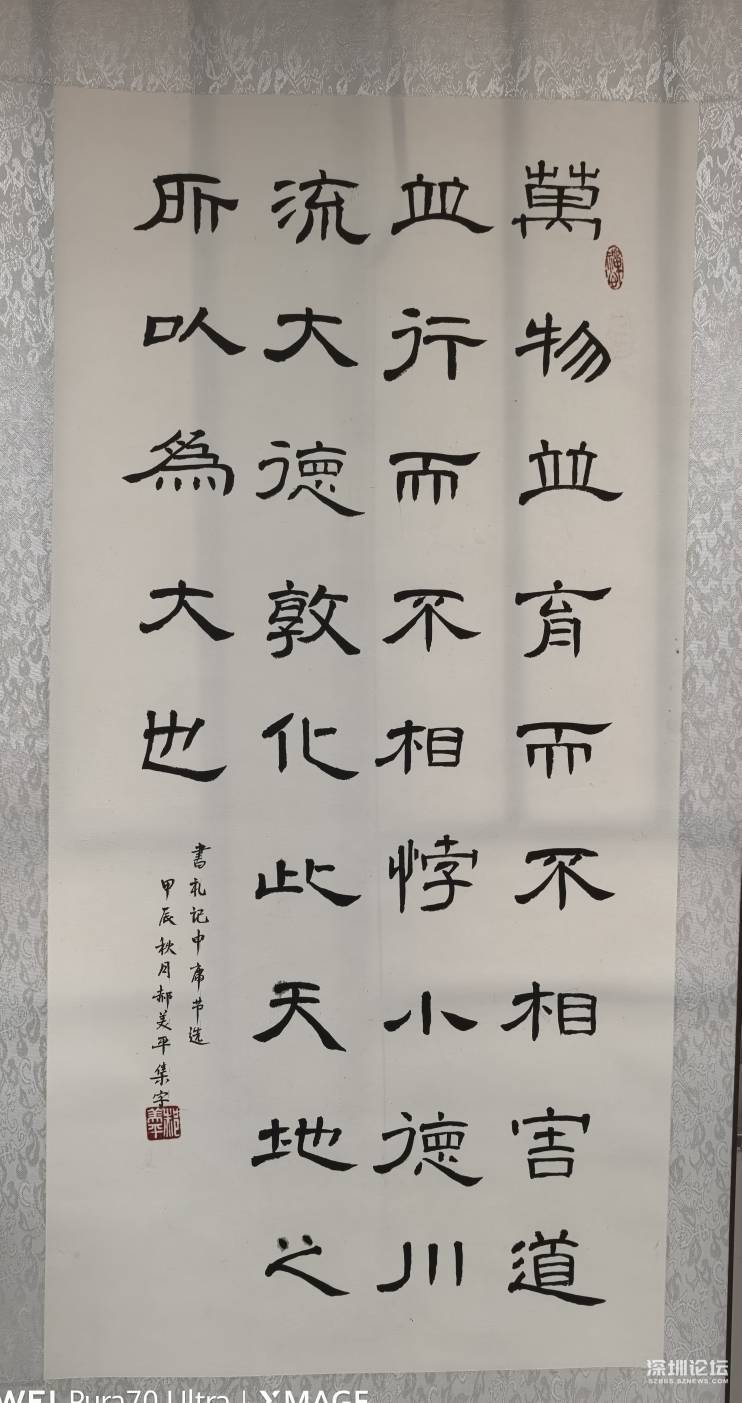 萬物並育而不相害道
並行而不相悖小德川
流大德敦化此天地之
所以為大也
書礼记中庸节选
甲辰秋月郝美平集字
郝美平
WEI Pura70 Ultra | XMAGE
深圳论坛
SZBBS.SZNEWS.COM